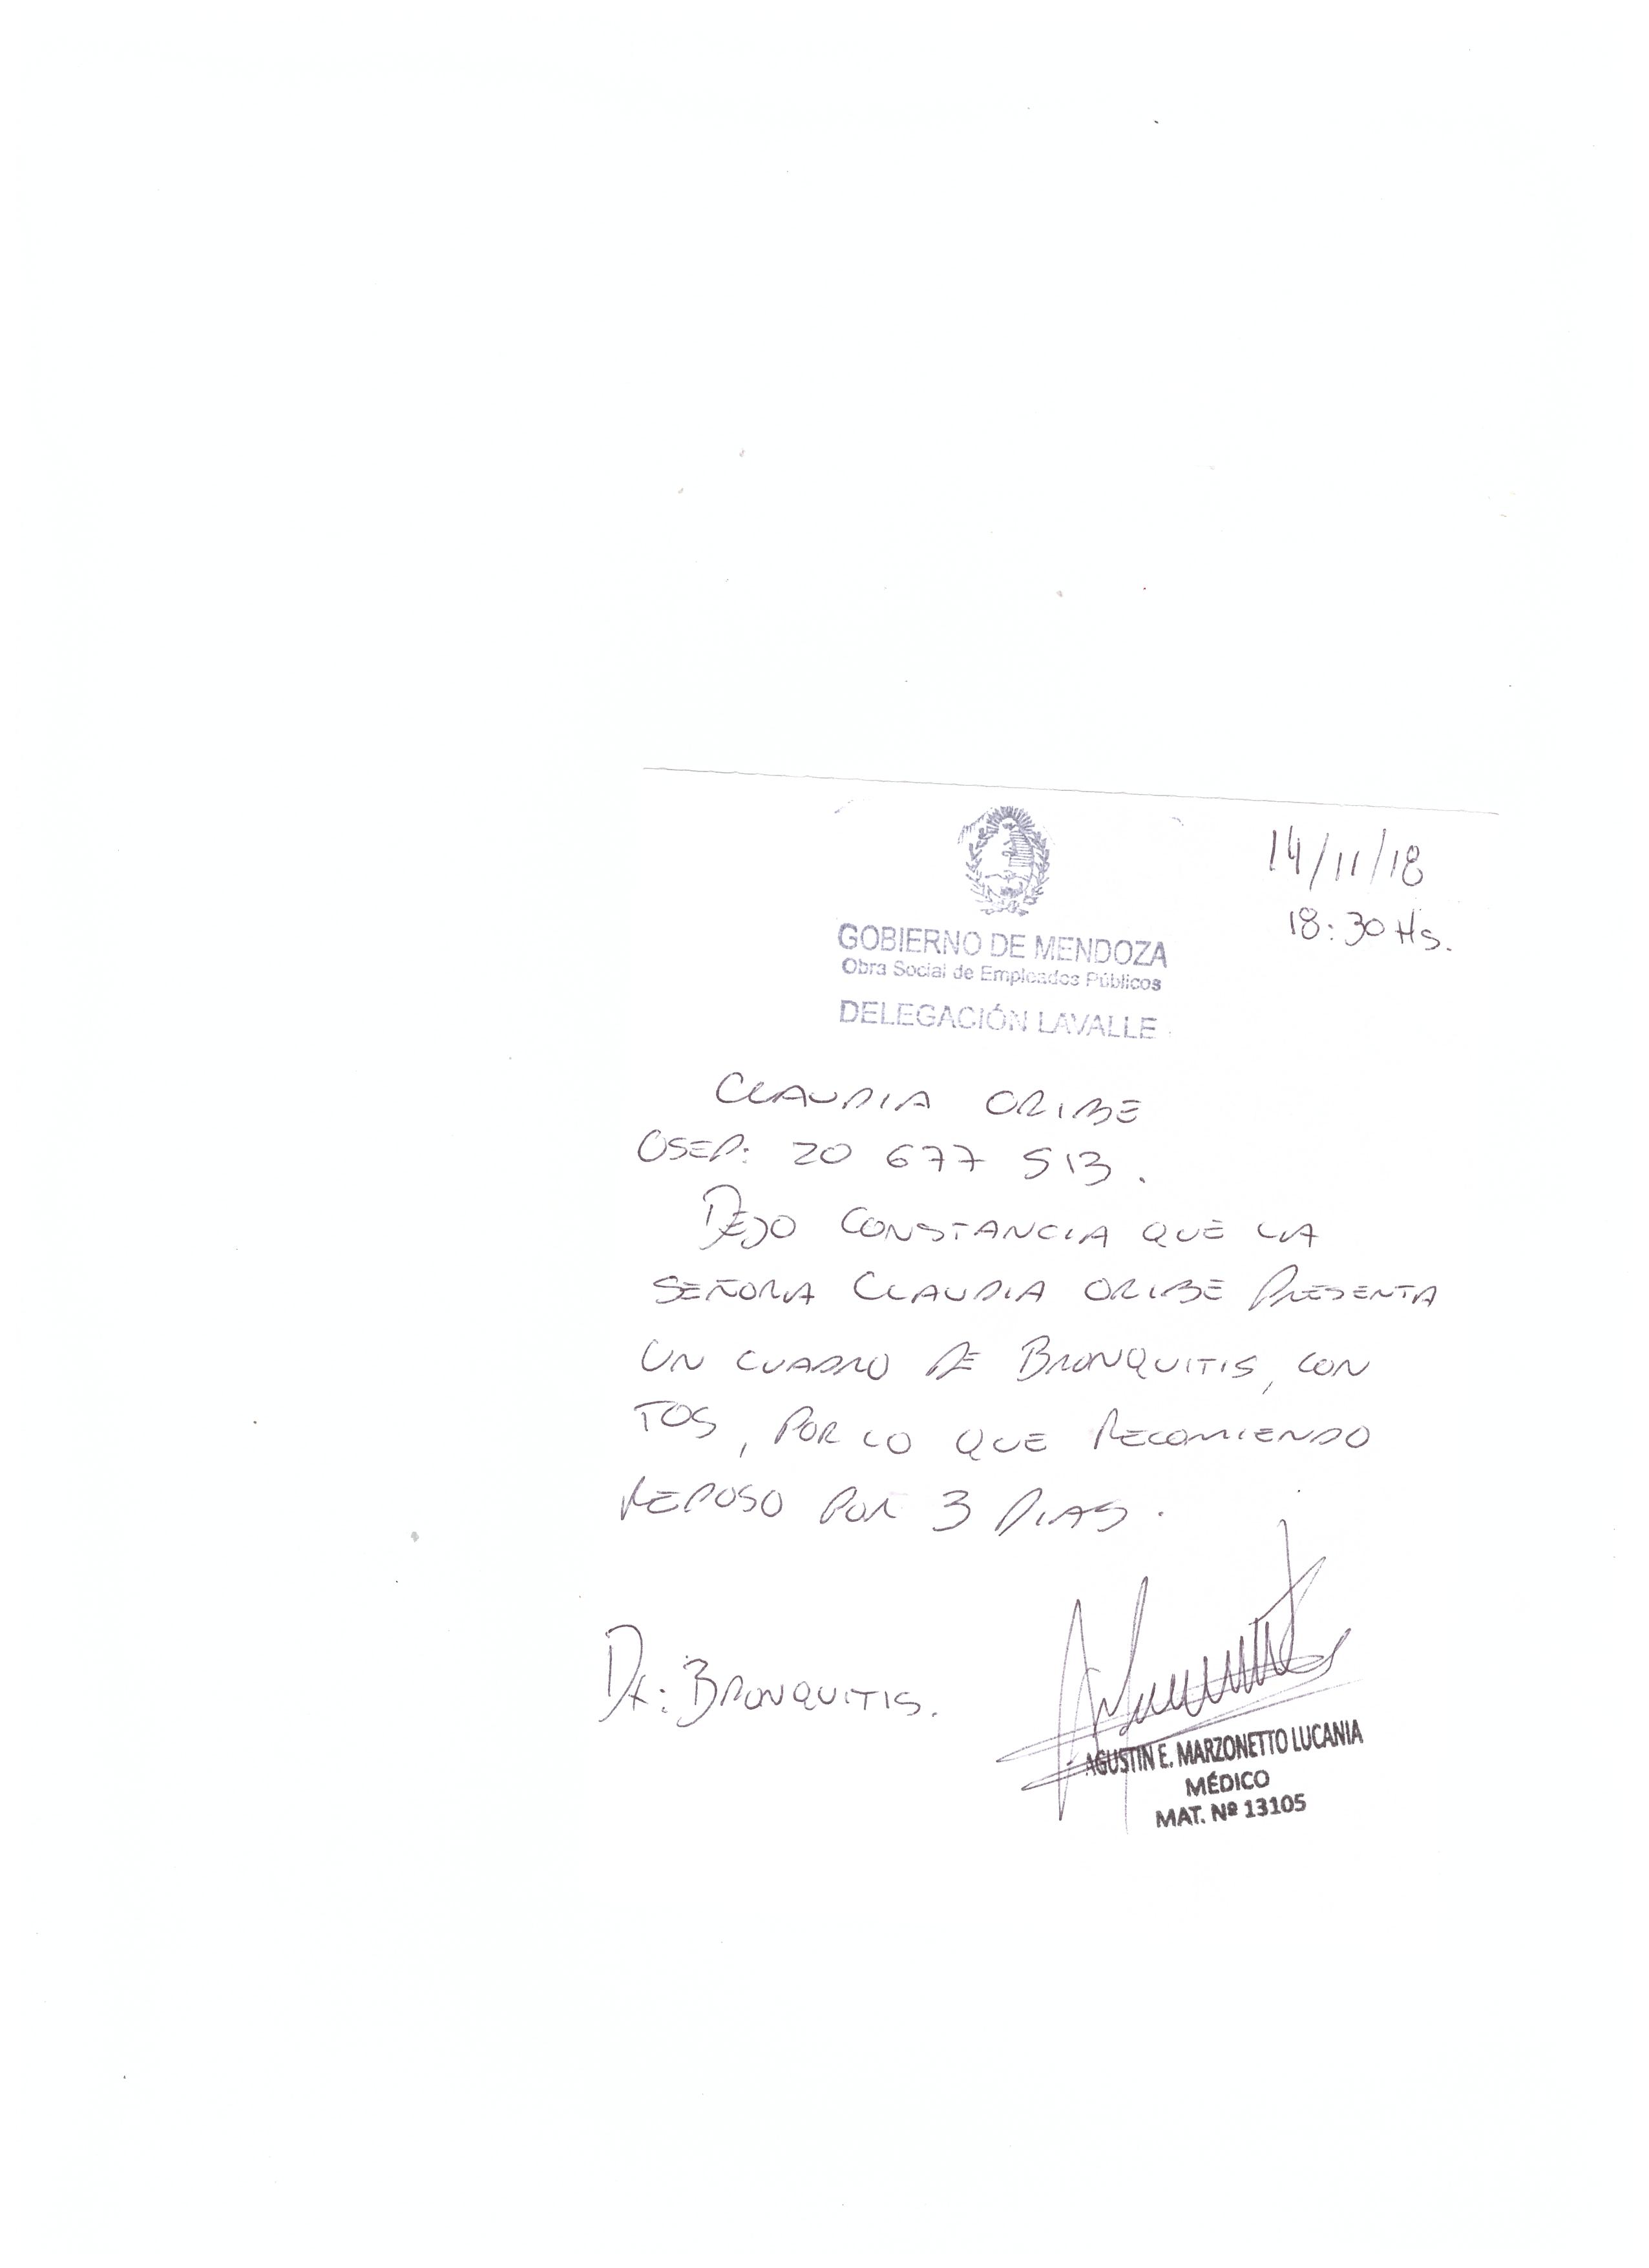 14/11/18
18:30 Hs.
GOBIERNO DE MENDOZA
Obra Social de Empleados Públicos
DELEGACIÓN LAVALLE
CLAUDIA ORIBE
OSEP: 20 677 513.
DEJO CONSTANCIA QUE LA
SEÑORA CLAUDIA ORIBE PRESENTA
UN CUADRO DE BRONQUITIS, CON
TOS, POR LO QUE RECOMIENDO
REPOSO POR 3 DIAS.
Dx: BRONQUITIS.
AGUSTIN E. MARZONETTO LUCANIA
MÉDICO
MAT. Nº 13105